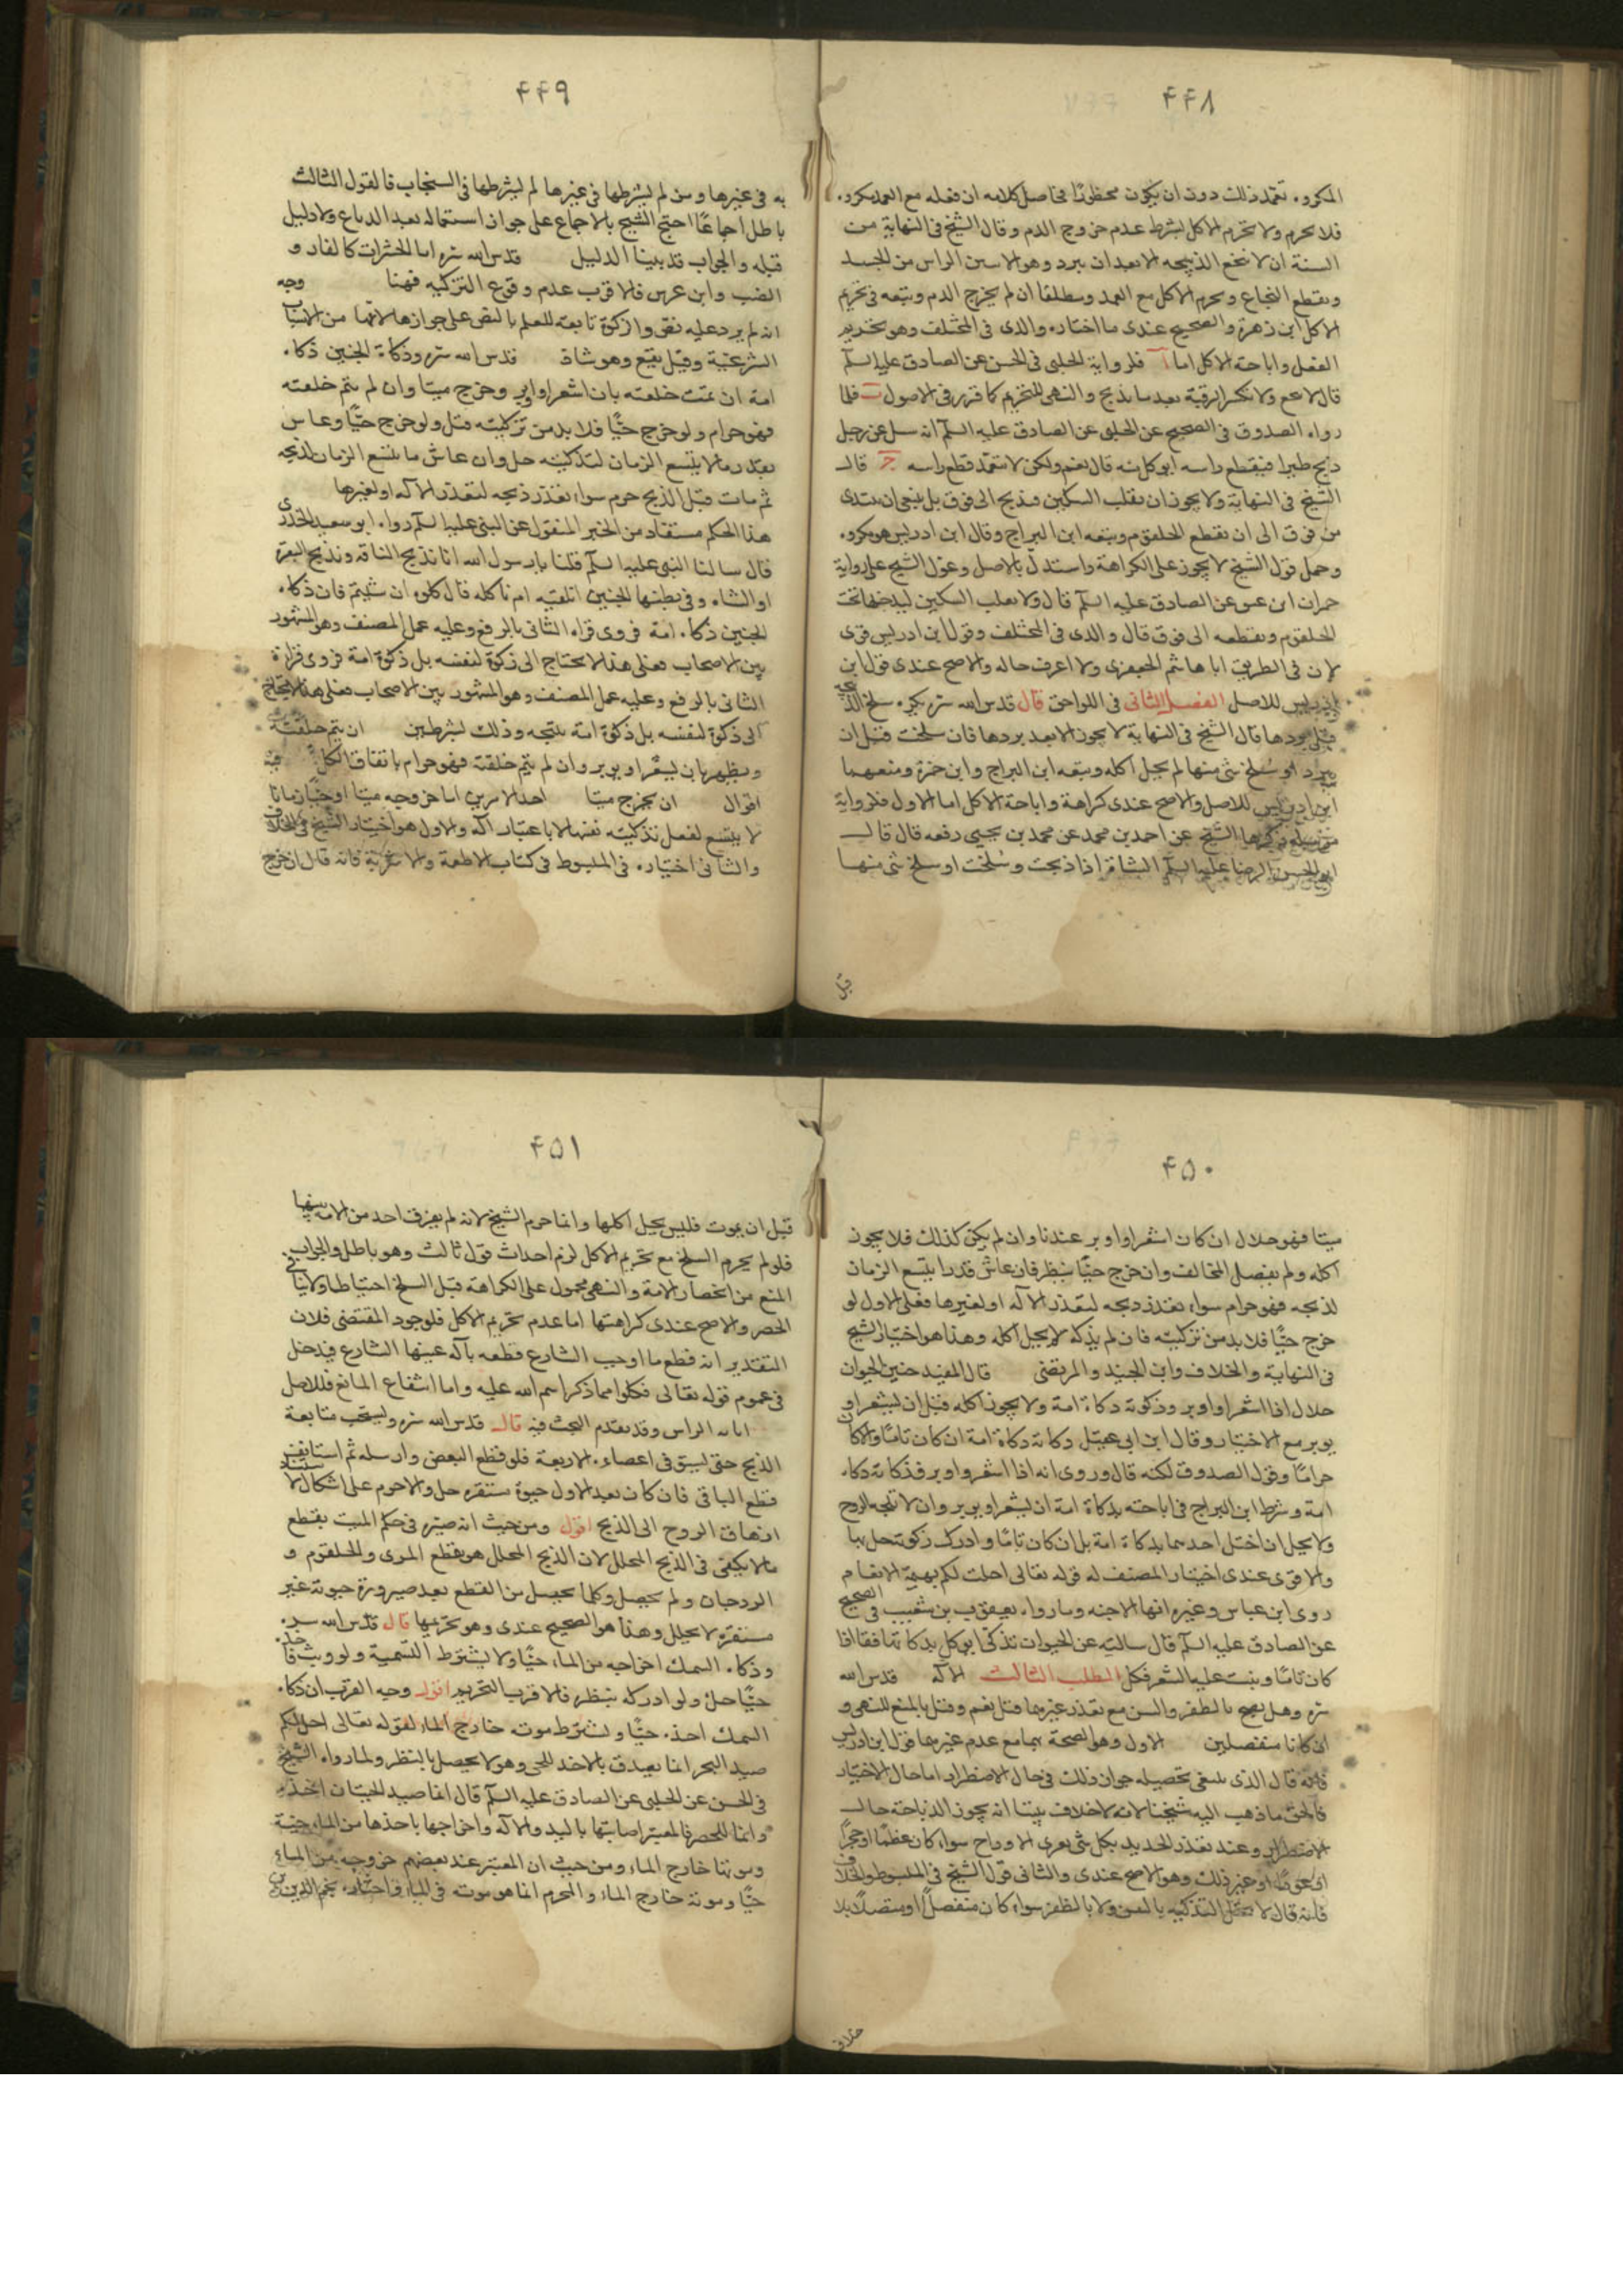 ۴۴۸
المكروه تعمد ذلك دون ان يكون محظورًا فحاصل كلامه ان فعله مع العمد مكروه
فلا يحرم ولا تحرم الاكل بشرط عدم خروج الدم وقال الشيخ فى النهاية من
السنة ان لا تنخع الذبيحه الا بعد ان تبرد وهو الا يبين الراس من الجسد
ويقطع النخاع ويحرم الاكل مع العمد ومطلقا ان لم يخرج الدم وتبعه فى تحريم
الاكل ابن زهرة والصحيح عندى ما اختاره والدى فى المختلف وهو تحريم
الفعل واباحة الاكل اما آ فلرواية الحلبى فى الحسن عن الصادق عليه السلم
قال لا تنخع ولا تكسر الرقبة بعد ما تذبح والنهى للتحريم كما قرر فى الاصول ب فلما
رواه الصدوق فى الصحيح عن الحلبى عن الصادق عليه السلم انه سئل عن رجل
ذبح طيرا فيقطع راسه ايوكل منه قال نعم ولكن لا تتعمد قطع راسه ج قال
الشيخ فى النهاية ولا يجوز ان يقلب السكين فيذبح الى فوق بل ينبغى ان يبتدى
من فوق الى ان يقطع الحلقوم وتبعه ابن البراج وقال ابن ادريس هو مكروه
وحمل قول الشيخ لا يجوز على الكراهة واستدل بالاصل وعول الشيخ على رواية
حمران ابن عين عن الصادق عليه السلم قال ولا تقلب السكين ليدخلها تحت
الحلقوم ويقطعه الى فوق قال والدى فى المختلف وقول ابن ادريس قوى
لان فى الطريق ابا هاشم الجعفرى ولا اعرف حاله والاصح عندى قول ابن
ادريس للاصل الفصل الثانى فى اللواحق قال قدس الله سره يكره سلخ الذبيحه
قبل بردها قال الشيخ فى النهاية لا يجوز الا بعد بردها فان سلخت قبل ان
تبرد او سلخ شئ منها لم يحل اكله وتبعه ابن البراج وابن حمزة ومنعهما
ابن ادريس للاصل والاصح عندى كراهة واباحة الاكل اما الاول فلرواية
مرسلة ذكرها الشيخ عن احمد بن محمد عن محمد بن يحيى رفعه قال قال
ابو الحسن الرضا عليه السلم الشاة اذا ذبحت وسلخت او سلخ شئ منها
قبل
۴۴۹
به فى غيرها ومن لم يشرطها فى غيرها لم يشرطها فى السنجاب فالقول الثالث
باطل اجماعًا احتج الشيخ بالاجماع على جواز استعماله بعد الدباغ ولا دليل
قبله والجواب قد بينا الدليل قدس الله سره اما الحشرات كالفار و
الضب وابن عرس فالاقرب عدم وقوع التزكيه فهنا وجه
انه لم يرد عليه نص والزكوة تابعة للعلم بالنص على جوازها لانها من الاسباب
الشرعية وقيل يقع وهو شاذ قدس الله سره وذكاة الجنين ذكاه
امه ان تمت خلقته بان اشعر او اوبر وخرج ميتا وان لم يتم خلقته
فهو حرام ولو خرج حيًّا فلا بد من تزكيته قيل ولو خرج حيًّا وعاش
بقدر ما لا يتسع الزمان لتذكيته حل وان عاش ما يتسع الزمان لذبحه
ثم مات قبل الذبح حرم سواء تعذر ذبحه لتعذر الاله او لغيرها
هذا الحكم مستفاد من الخبر المنقول عن النبى عليه السلم رواه ابو سعيد الخدرى
قال سالنا النبى عليه السلم فقلنا يا رسول الله انا نذبح الناقه ونذبح البقرة
او الشاه وفى بطنها الجنين انلقيه ام ناكله قال كلوه ان شئتم فان ذكاه
الجنين ذكاه امه فروى قراه الثانى بالرفع وعليه عمل المصنف وهو المشهور
بين الاصحاب فعلى هذا لا يحتاج الى ذكوة لنفسه بل ذكوة امه فروى قراءة
الثانى بالرفع وعليه عمل المصنف وهو المشهور بين الاصحاب فعلى هذا لا يحتاج
الى ذكوة لنفسه بل ذكوة امه بتبعه وذلك بشرطين ان يتم خلقته
ويظهر بان يشعر او يوبر وان لم يتم خلقته فهو حرام باتفاق الكل فيه
اقوال ان يخرج ميتا احد الامرين اما خروجه ميتا او حيًّا زمانا
لا يتسع لفعل تذكيته نفسه الا باعتبار اله والاول هو اختيار الشيخ فى الخلاف
والثانى اختياره فى المبسوط فى كتاب الاطعة والاشربة فانه قال ان خرج
۴۵۰
ميتا فهو حلال ان كان اشعر او اوبر عندنا وان لم يكن كذلك فلا يجوز
اكله ولم يفصل المخالف وان خرج حيًّا ينظر فان عاش قدرا يتسع الزمان
لذبحه فهو حرام سواء تعذر ذبحه لتعذر الاله او لغيرها فعلى الاول لو
خرج حيًّا فلا بد من تزكيته فان لم يذكه لا يحل اكله وهذا هو اختيار الشيخ
فى النهاية والخلاف وابن الجنيد والمرتضى قال المفيد جنين الحيوان
حلال اذا اشعر او اوبر وذكوته دكاة امه ولا يجوز اكله قبل ان يشعر او
يوبر مع الاختيار وقال ابن ابى عقيل دكاته دكاة امه ان كان تامًا والا كان
حرامًا وقول الصدوق لكنه قال وروى انه اذا اشعر او اوبر فذكاته دكاه
امه وشرط ابن البراج فى اباحته بدكاة امه ان يشعر او يوبر وان لا تلجه الروح
ولا يحل ان اختل احدهما بدكاة امه بل ان كان تامًا وادرك زكوته حل بها
والاقوى عندى اختيار المصنف له قوله تعالى احلت لكم بهيمة الانعام
روى ابن عباس وغيره انها الاجنه وما رواه يعقوب بن شعيب فى الصحيح
عن الصادق عليه السلم قال سالته عن الحيوان تذكى ايوكل بدكاتها فقال اذا
كان تامًا وينبت عليه الشعر فكل المطلب الثالث الاله قدس الله
سره وهل يصح بالظفر والسن مع تعذر غيرهما قيل نعم وقيل بالمنع للنهى و
ان كانا منفصلين الاول وهو الصحة بهما مع عدم غيرهما قول ابن ادريس
فانه قال الذى ينبغى تحصيله جواز ذلك فى حال الاضطرار اما حال الاختيار
فالحق ما ذهب اليه شيخنا لانه لا خلاف بيننا انه يجوز الذباحة حال
الاضطرار وعند تعذر الحديد بكل شئ يفرى الاوداج سواء كان عظمًا او حجرًا
او عودًا او غير ذلك وهو الاصح عندى والثانى قول الشيخ فى المبسوط والخلاف
فانه قال لا تحل التذكيه بالسن ولا بالظفر سواء كان منفصلًا او متصلًا بلا
خلاف
۴۵۱
قبل ان يموت فليس يحل اكلها وانما حرم الشيخ لانه لم يفرق احد من الامه بينهما
فلو لم يحرم السلخ مع تحريم الاكل لزم احداث قول ثالث وهو باطل والجواب
المنع من انحصار الامة والنهى محمول على الكراهة قبل السلخ احتياطا ولا نيا فى
الحصر والاصح عندى كراهتها اما عدم تحريم الاكل فلوجود المقتضى فلان
التقدير انه قطع ما اوجب الشارع قطعه بآله عينها الشارع فيدخل
فى عموم قوله تعالى فكلوا مما ذكر اسم الله عليه واما انتفاع المانع فللاصل
ابانه الراس وقد تقدم البحث فيه قال قدس الله سره ويستحب متابعة
الذبح حتى يسبق فى اعضاءه الاربعة فلو قطع البعض وارسله ثم استانف
قطع الباقى فان كان بعد الاول حيوة مستقره حل والا حرم على اشكال لاستناد
ازهاق الروح الى الذبح اقول ومن حيث انه صيره فى حكم الميت بقطع
ما لا يكفى فى الذبح المحلل لان الذبح المحلل هو بقطع المرى والحلقوم و
الودجان ولم يحصل وكلما يحصل من القطع بعد صيرورة حيوته غير
مستقرة لا يحلل وهذا هو الصحيح عندى وهو تحريمها قال قدس الله سره
وذكاه السمك اخراجه من الماء حيًّا ولا يشترط التسمية ولو وثب فاخذه
حيًّا حل ولو ادركه بنظره فالاقرب التحريم اقول وجه القرب ان دكاه
السمك اخذه حيًّا ويشترط موته خارج الماء لقوله تعالى احل لكم
صيد البحر انما يصدق بالاخذ للحى وهو لا يحصل بالنظر ولما رواه الشيخ
فى الحسن عن الحلبى عن الصادق عليه السلم قال انما صيد الحيتان اخذه
وانما للحصر فالمعتبر اصابتها باليد والاله واخراجها باخذها من الماء حية
وموتها خارج الماء ومن حيث ان المعتبر عند بعضهم خروجه من الماء
حيًّا وموته خارج الماء والمحرم انما هو موته فى الماء واختاره نجم الدين بن